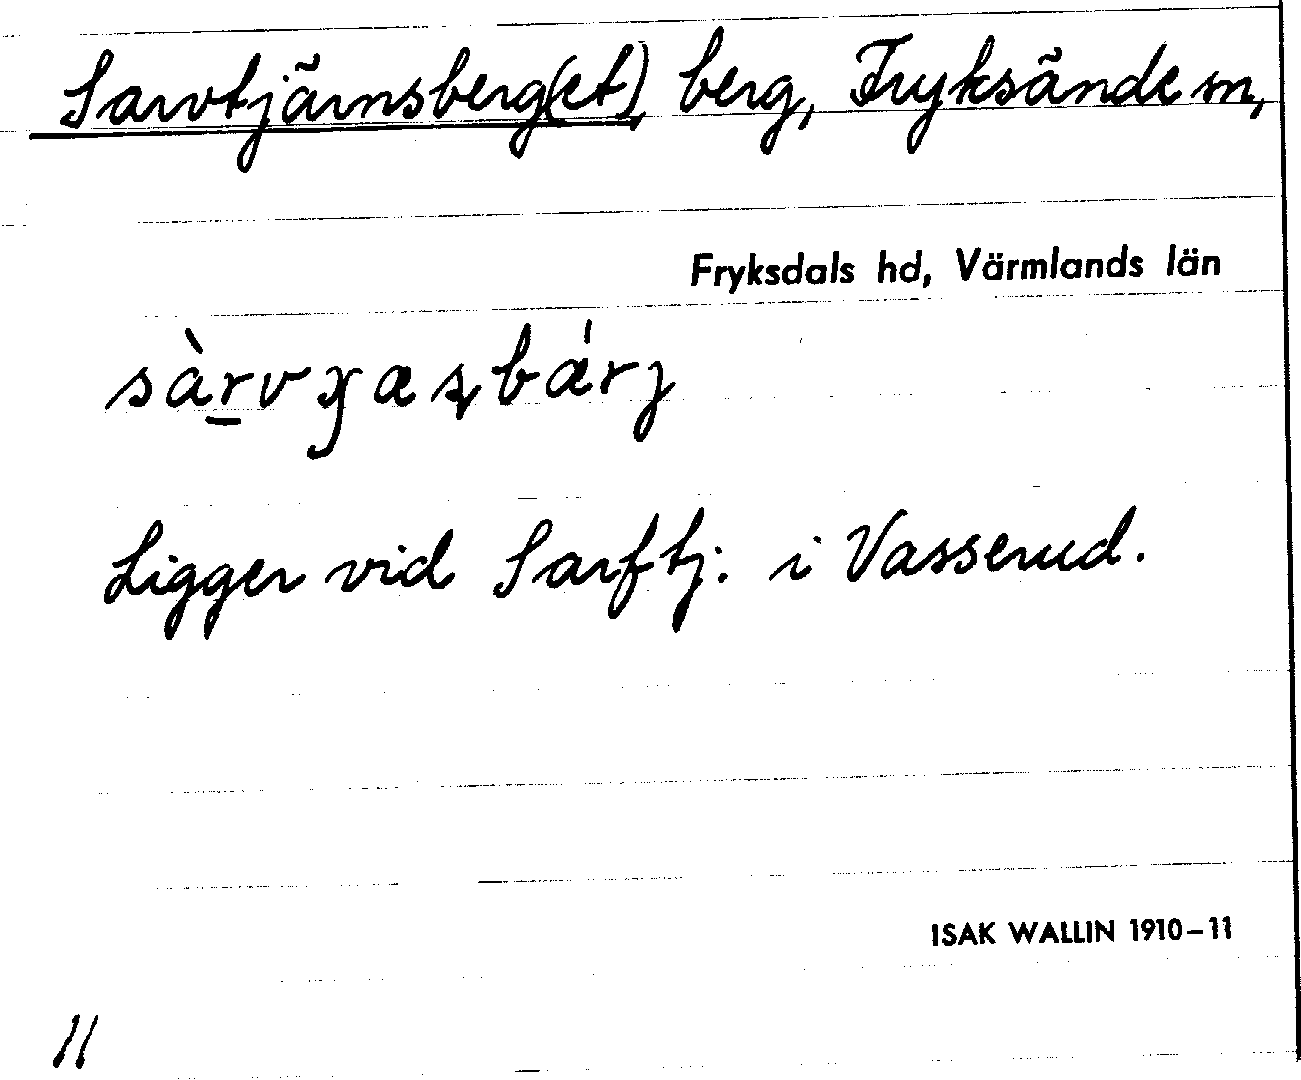 Sarvtjärnsberg(et), berg, Fryksände sn,
Fryksdals hd, Värmlands län
Ligger vid Sarftj. i Vasserud.
ISAK WALLIN 1910–11
11